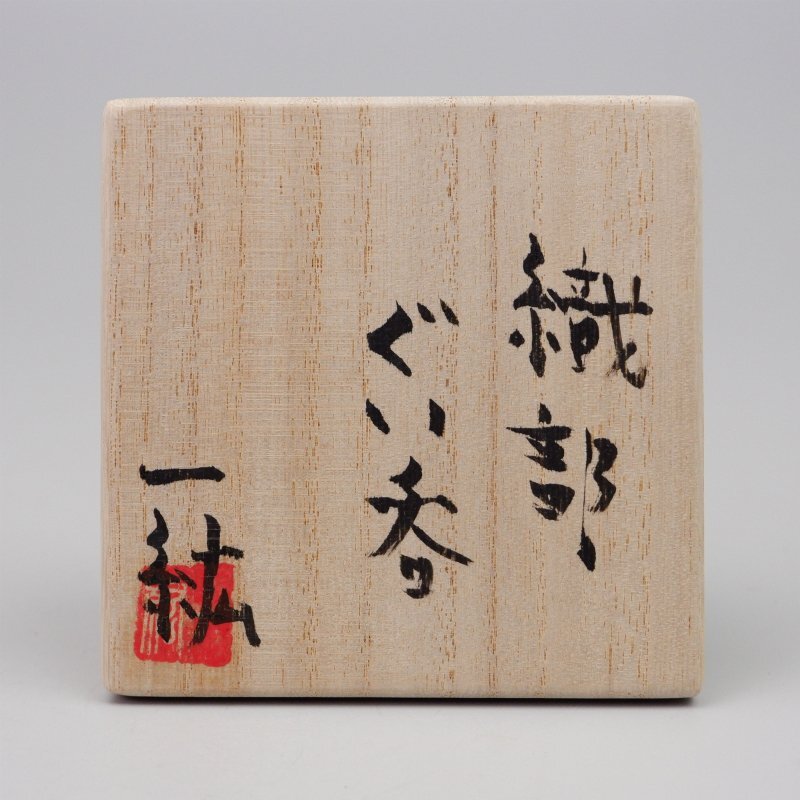 織部
ぐい呑
一紘